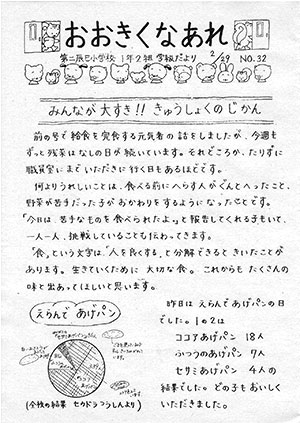 おおきくなあれ
第二辰巳小学校 1年2組 学級だより 2/29 NO.32
みんなが大すき!! きゅうしょくのじかん
前の号で給食を完食する元気者の話をしましたが、今週も
ずっと残菜はなしの日が続いています。それどころか、たりずに
職員室にまでいただきに行く日もあるほどです。
何よりうれしいことは、食べる前にへらす人がぐんとへったこと、
野菜が苦手だった子がおかわりをするようになったことです。
「今日は、苦手なものを食べられたよ。」と報告してくれる子もいて、
一人一人、挑戦していることも伝わってきます。
「食」という文字は「人を良くする」と分解できるときいたことが
あります。生きていくために大切な食。これからもたくさんの
味と出あってほしいと思います。
えらんで あげパン
(全校の結果 セクドラつうしんより)
昨日は えらんであげパンの日
でした。1の2は
ココアあげパン 18人
ふつうのあげパン 7人
セサミあげパン 4人の
結果でした。どの子もおいしく
いただきました。